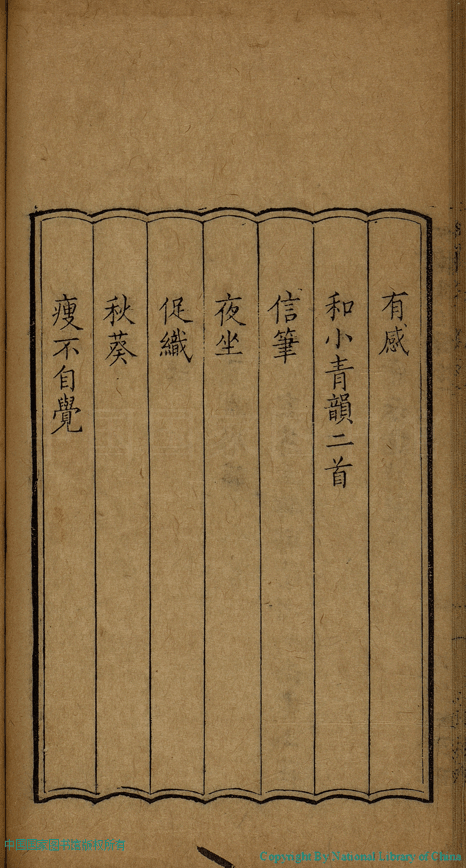 有感
和小青韻二首
信筆
夜坐
促織
秋葵
瘦不自覺
Copyright By National Library of China